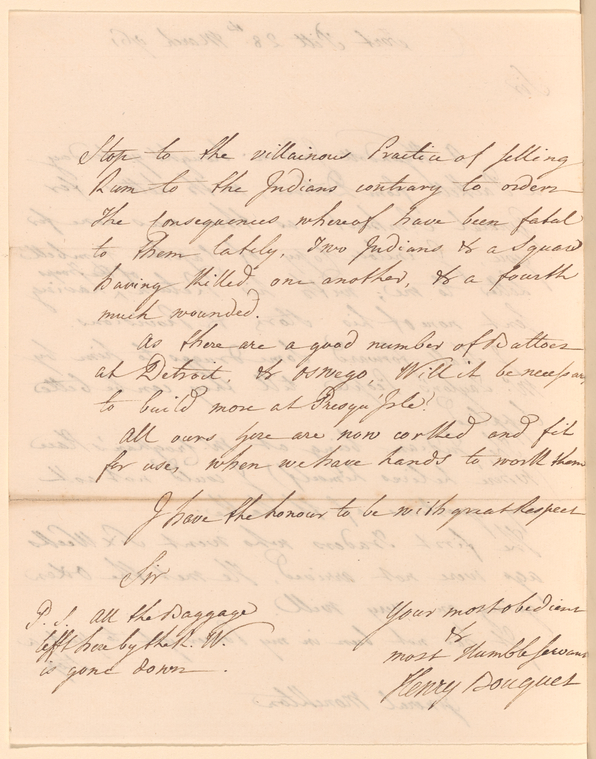 Stop to the villainous Practice of selling
Rum to the Indians contrary to orders
The Consequences whereof have been fatal
to them lately, Two Indians & a Squaw
having killed one another, & a fourth
much wounded.
As there are a good number of Battoes
at Detroit, & Oswego, Will it be necessary
to build more at Presqu'Isle?
All ours here are now corked and fit
for use, when we have hands to work them
I have the honour to be with great Respect
Sir
Your most obedient
&
most Humble Servant
Henry Bouquet
P. S. all the Baggage
left here by the R. W.
is gone down.